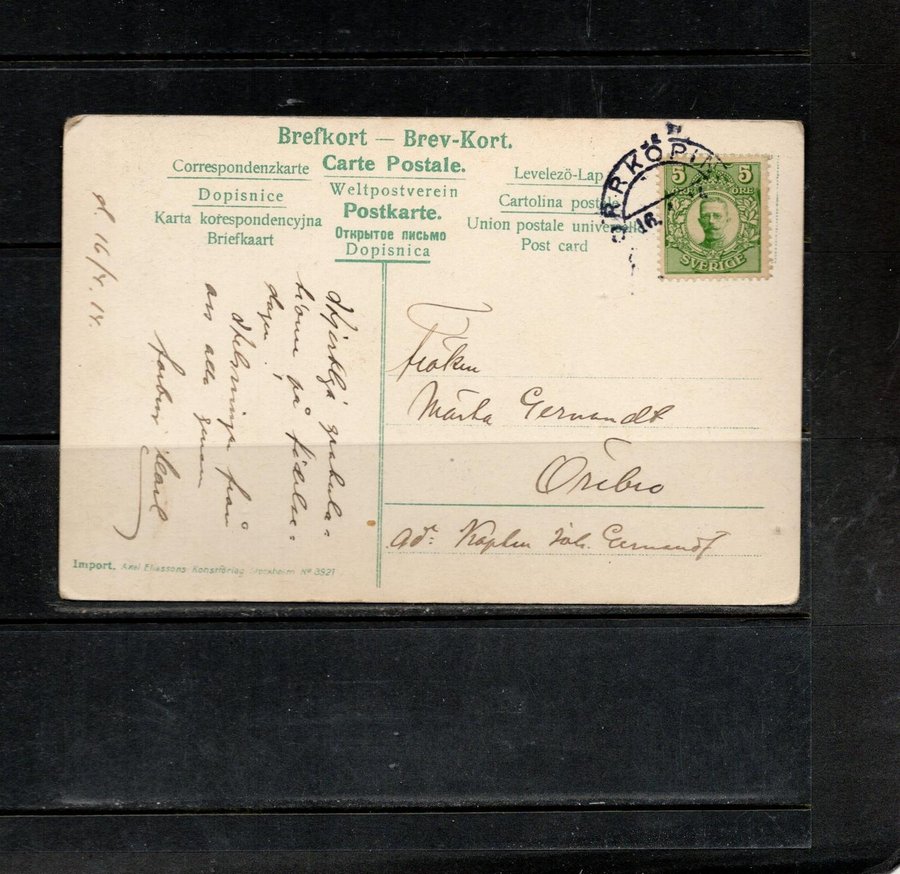 Brefkort — Brev-Kort.
Correspondenzkarte Carte Postale. Levelező-Lap
Dopisnice Weltpostverein Cartolina postale
Karta korespondencyjna Postkarte. Union postale universelle
Briefkaart Открытое письмо Post card
Dopisnica
NORRKÖPING
16.
5 5
ÖRE ÖRE
SVERIGE
d. 16/4. 14.
Hjertliga gratula-
tioner på födelse-
dagen,
Helsningar från
oss alla genom
farbror Karl
Fröken
Märta Gernandt
Örebro
Adr: Kapten Joh. Gernandt
Import. Axel Eliassons Konstförlag Stockholm No 3921